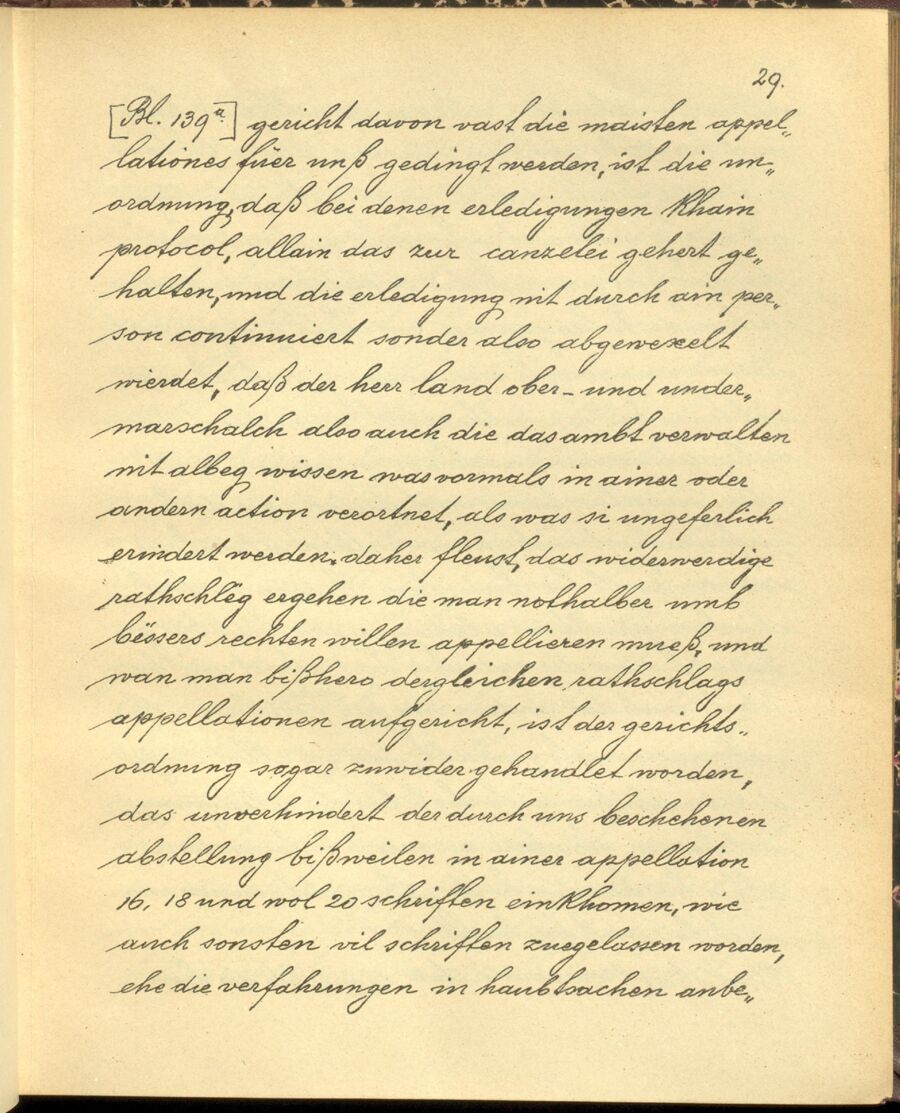 29.
[Bl. 139ª.] gericht davon vast die maisten appel„
lationes füer unß gedingt werden, ist die un„
ordnung, daß bei denen erledigungen khain
protocol, allain das zur canzelei gehert ge„
halten, und die erledigung nit durch ain per„
son continuiert sonder also abgewexelt
wierdet, daß der herr land ober- und under„
marschalch also auch die das ambt verwalten
nit albeg wissen was vormals in ainer oder
andern action verortnet, als was si ungeferlich
erindert werden. daher fleust, das widerwerdige
rathschlëg ergehen die man nothalber umb
bëssers rechten willen appellieren mueß, und
wan man bißhero dergleichen rathschlags
appellationen aufgericht, ist der gerichts„
ordnung sogar zuwider gehandlet worden,
das unverhindert der durch uns beschehenen
abstellung bißweilen in ainer appellation
16, 18 und wol 20 schriften einkhomen, wie
auch sonsten vil schriften zuegelassen worden,
ehe die verfahrungen in haubtsachen anbe„